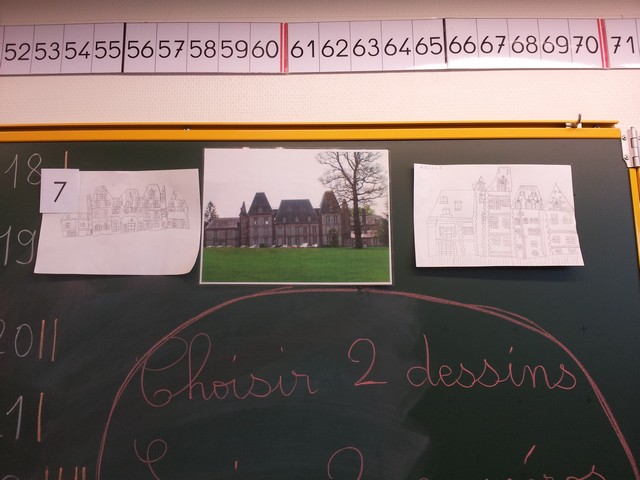 52 53 54 55 56 57 58 59 60 61 62 63 64 65 66 67 68 69 70 71
18 |
7
19
20 ||
21 |
Choisir 2 dessins
2